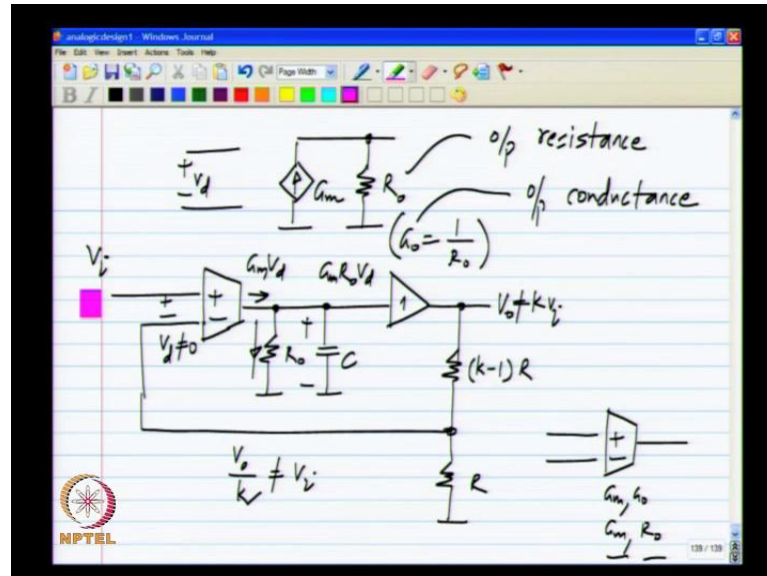 analogicdesign1 - Windows Journal
File Edit View Insert Actions Tools Help
Page Width
B I
o/p resistance
+ Vd -
Gm
Ro
o/p conductance
(Go = 1/Ro)
Vi
GmVd
GmRoVd
+ -
+ -
Vd ≠ 0
Ro
+ -
C
1
Vo ≠ kVi
(k-1) R
Vo/k ≠ Vi
R
+ -
Gm, Go
Gm, Ro
NPTEL
139 / 139